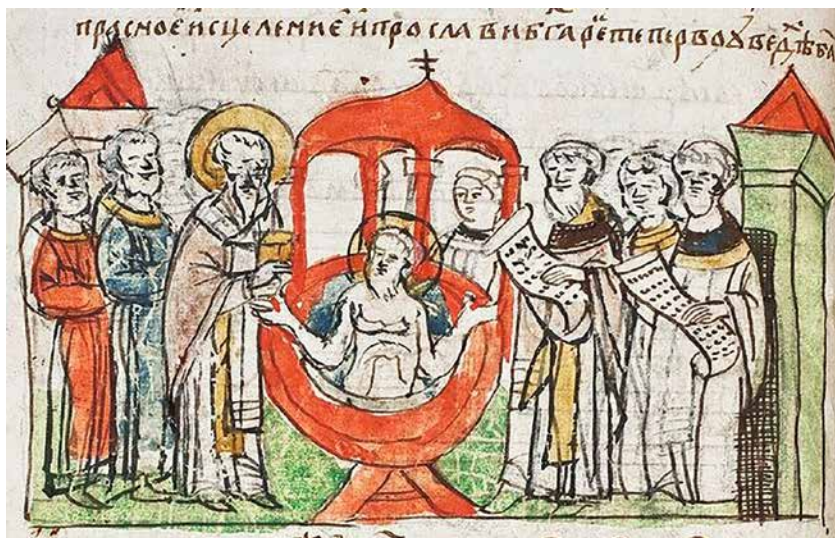 прасное исцеление и прослави бга реⷱ теперво ꙋведѣⷯ ба